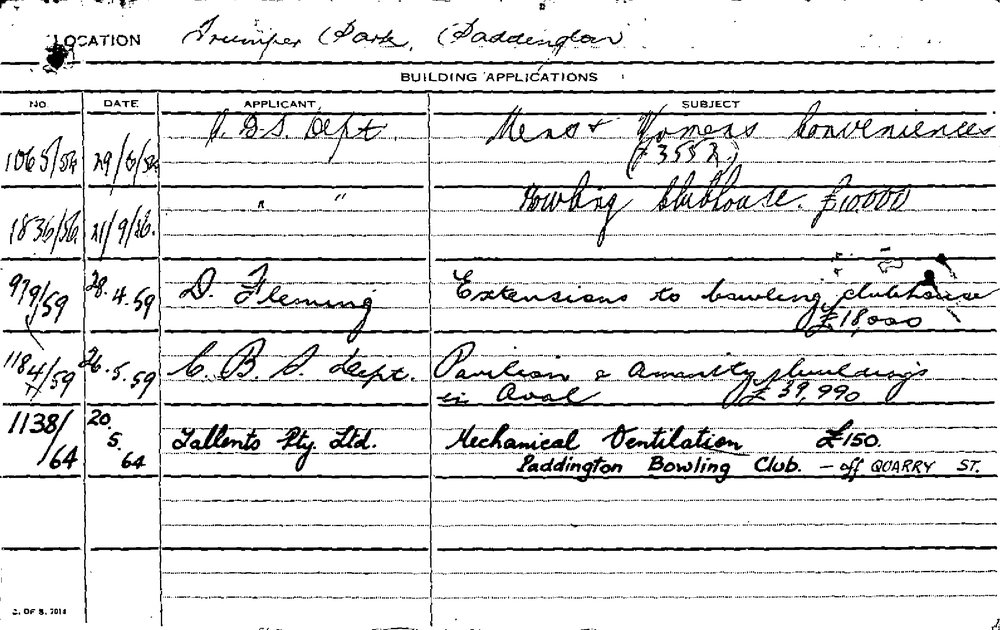 LOCATION Trumper Park, Paddington
BUILDING APPLICATIONS
No. DATE APPLICANT SUBJECT
1065/56 29/6/56 Dept. Mens & Womens Conveniences
(£3552)
1836/56. 21/9/56. " " Bowling Clubhouse. £10,000
979/59 28.4.59 D. Fleming Extensions to bowling clubhouse
£18,000
1184/59 26.5.59 C. B. S. dept. Pavilion & Amenity buildings
in Oval £39,990
1138/64 20.5.64 Tallents Pty. Ltd. Mechanical Ventilation £150.
Paddington Bowling Club. - off QUARRY ST.
C. OF S. 7014